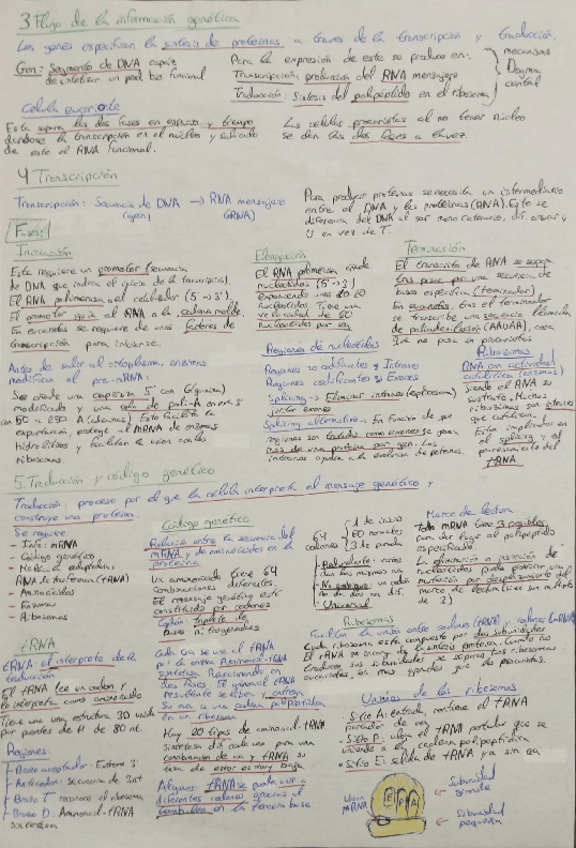 3 Flujo de la información genética
Los genes especifican la síntesis de proteínas a través de la transcripción y traducción.
Gen: Segmento de DNA capaz
de sintetizar un prod. bio. funcional
Para la expresión de este se produce en:
Transcripción: producción del RNA mensajero
Traducción: Síntesis del polipéptido en el ribosoma
mecanismos
Dogma
central
Célula eucariote
Esta separa las dos fases en espacio y tiempo
dándose la transcripción en el núcleo y saliendo
de este el RNA funcional.
Las células procariotas al no tener núcleo
se dan las dos fases a la vez.
4 Transcripción
Transcripción: Secuencia de DNA → RNA mensajero
(gen)
Para producir proteínas se necesita un intermediario
entre el DNA y las proteínas (RNA). Este se
diferencia del DNA al ser mono catenario, dif. azúcar y
U en vez de T.
Fases:
Iniciación
Este requiere un promotor (secuencia
de DNA que indica el inicio de la transcripción).
El RNA polimerasa, al catalizador (5'→3').
El promotor guía al RNA a la cadena molde.
En eucariotas se requiere de unos factores de
transcripción para iniciarse.
Elongación
El RNA polimerasa añade
nucleótidos (5'→3')
exponiendo unos 10-20
nucleótidos. Tiene una
velocidad de 60
nucleótidos por seg
Terminación
El transcrito de RNA se separa
tras pasar por una secuencia de
bases específica (terminador).
En eucariotas, tras el terminador
se transcribe una secuencia llamada
de poliadenilación (AAUAA), cosa
que no pasa en procariotas
Antes de salir al citoplasma, enzimas
modifican el pre-mRNA:
Se añade una caperuza 5' con G (guanina)
modificada y una cola de poli-A en ext. 3'
con 50 a 250 A (adeninas). Esto facilita la
exportación, protege al mRNA de enzimas
hidrolíticos y facilitan la unión con los
ribosomas.
Regiones de nucleótidos
Regiones no codificantes → Intrones
Regiones codificantes → Exones
Splicing → Eliminar intrones
juntar exones
Splicing alternativo → En función de que
regiones son tratadas como exones se gana
más de una proteína por gen. Los
intrones ayudan a la evolución de proteínas.
Ribozimas
RNA con actividad
catalítica (enzimas)
siendo el RNA su
sustrato. Muchas
ribozimas son intrones
que catalizan.
Esta implicados en
el splicing y el
procesamiento del
tRNA
5. Traducción y código genético
Traducción: proceso por el que la célula interpreta el mensaje genético y
construye una proteína.
Se requiere
- Info: mRNA
- Código genético
- Molec. adaptadora:
RNA de transferencia (tRNA)
- Aminoácidos
- Enzimas
- Ribosomas
Código genético
Relación entre la secuencia del
mRNA y de aminoácidos en la
proteína
Un aminoácido tiene 64
combinaciones diferentes.
El mensaje genético está
constituido por codones
Codón: triplete de
bases nitrogenadas
64
codones
1 de inicio
60 normales
3 de parada
- Universal
Marco de lectura
Todo mRNA tiene 3 posibles
para dar lugar al polipéptido
especificado
La eliminación o inserción de
nucleótidos puede provocar una
mutación por desplazamiento del
marco de lectura (si es un múltiplo
de 3)
tRNA
tRNA: el intérprete de la
traducción
El tRNA lee un codon y
lo interpreta como aminoácido
Tiene una estructura 3D unida
por puentes de H de 80 nt.
Regiones:
- Brazo aceptador: Extremo 3'
- Anticodon: secuencia de 3nt
- Brazo T: reconoce el ribosoma
- Brazo D: Aminoacil-tRNA
sintetasa
Cada aa se une al tRNA
por la enzima Aminoacil-tRNA
sintetasa. Reaccionando en
dos fases. El aminoacil tRNA
resultante se libera y entrega
su aa a una cadena polipeptídica
en un ribosoma
Hay 20 tipos de aminoacil-tRNA
sintetasa dif. cada uno para una
combinación de aa y tRNA, su
tasa de error es muy baja
Algunos tRNA se puede unir a
diferentes codones gracias al
tambaleo en la tercera base
Ribosomas
Facilitan la unión entre anticodones (tRNA) y codones (mRNA)
Cada ribosoma esta compuesto por dos subunidades
El rRNA se encarga de la síntesis proteica. Cuando no
traducen sus subunidades se separan. Los ribosomas
eucariotas son mas grandes que los procariotas.
Uniones de los ribosomas
• Sitio A: entrada, contiene el tRNA
portador de aa
• Sitio P: ubica el tRNA portador que se
uniendo a la cadena polipeptídica
• Sitio E: salida de tRNA ya sin aa
Unión
mRNA
E P A
Subunidad
grande
Subunidad
pequeña